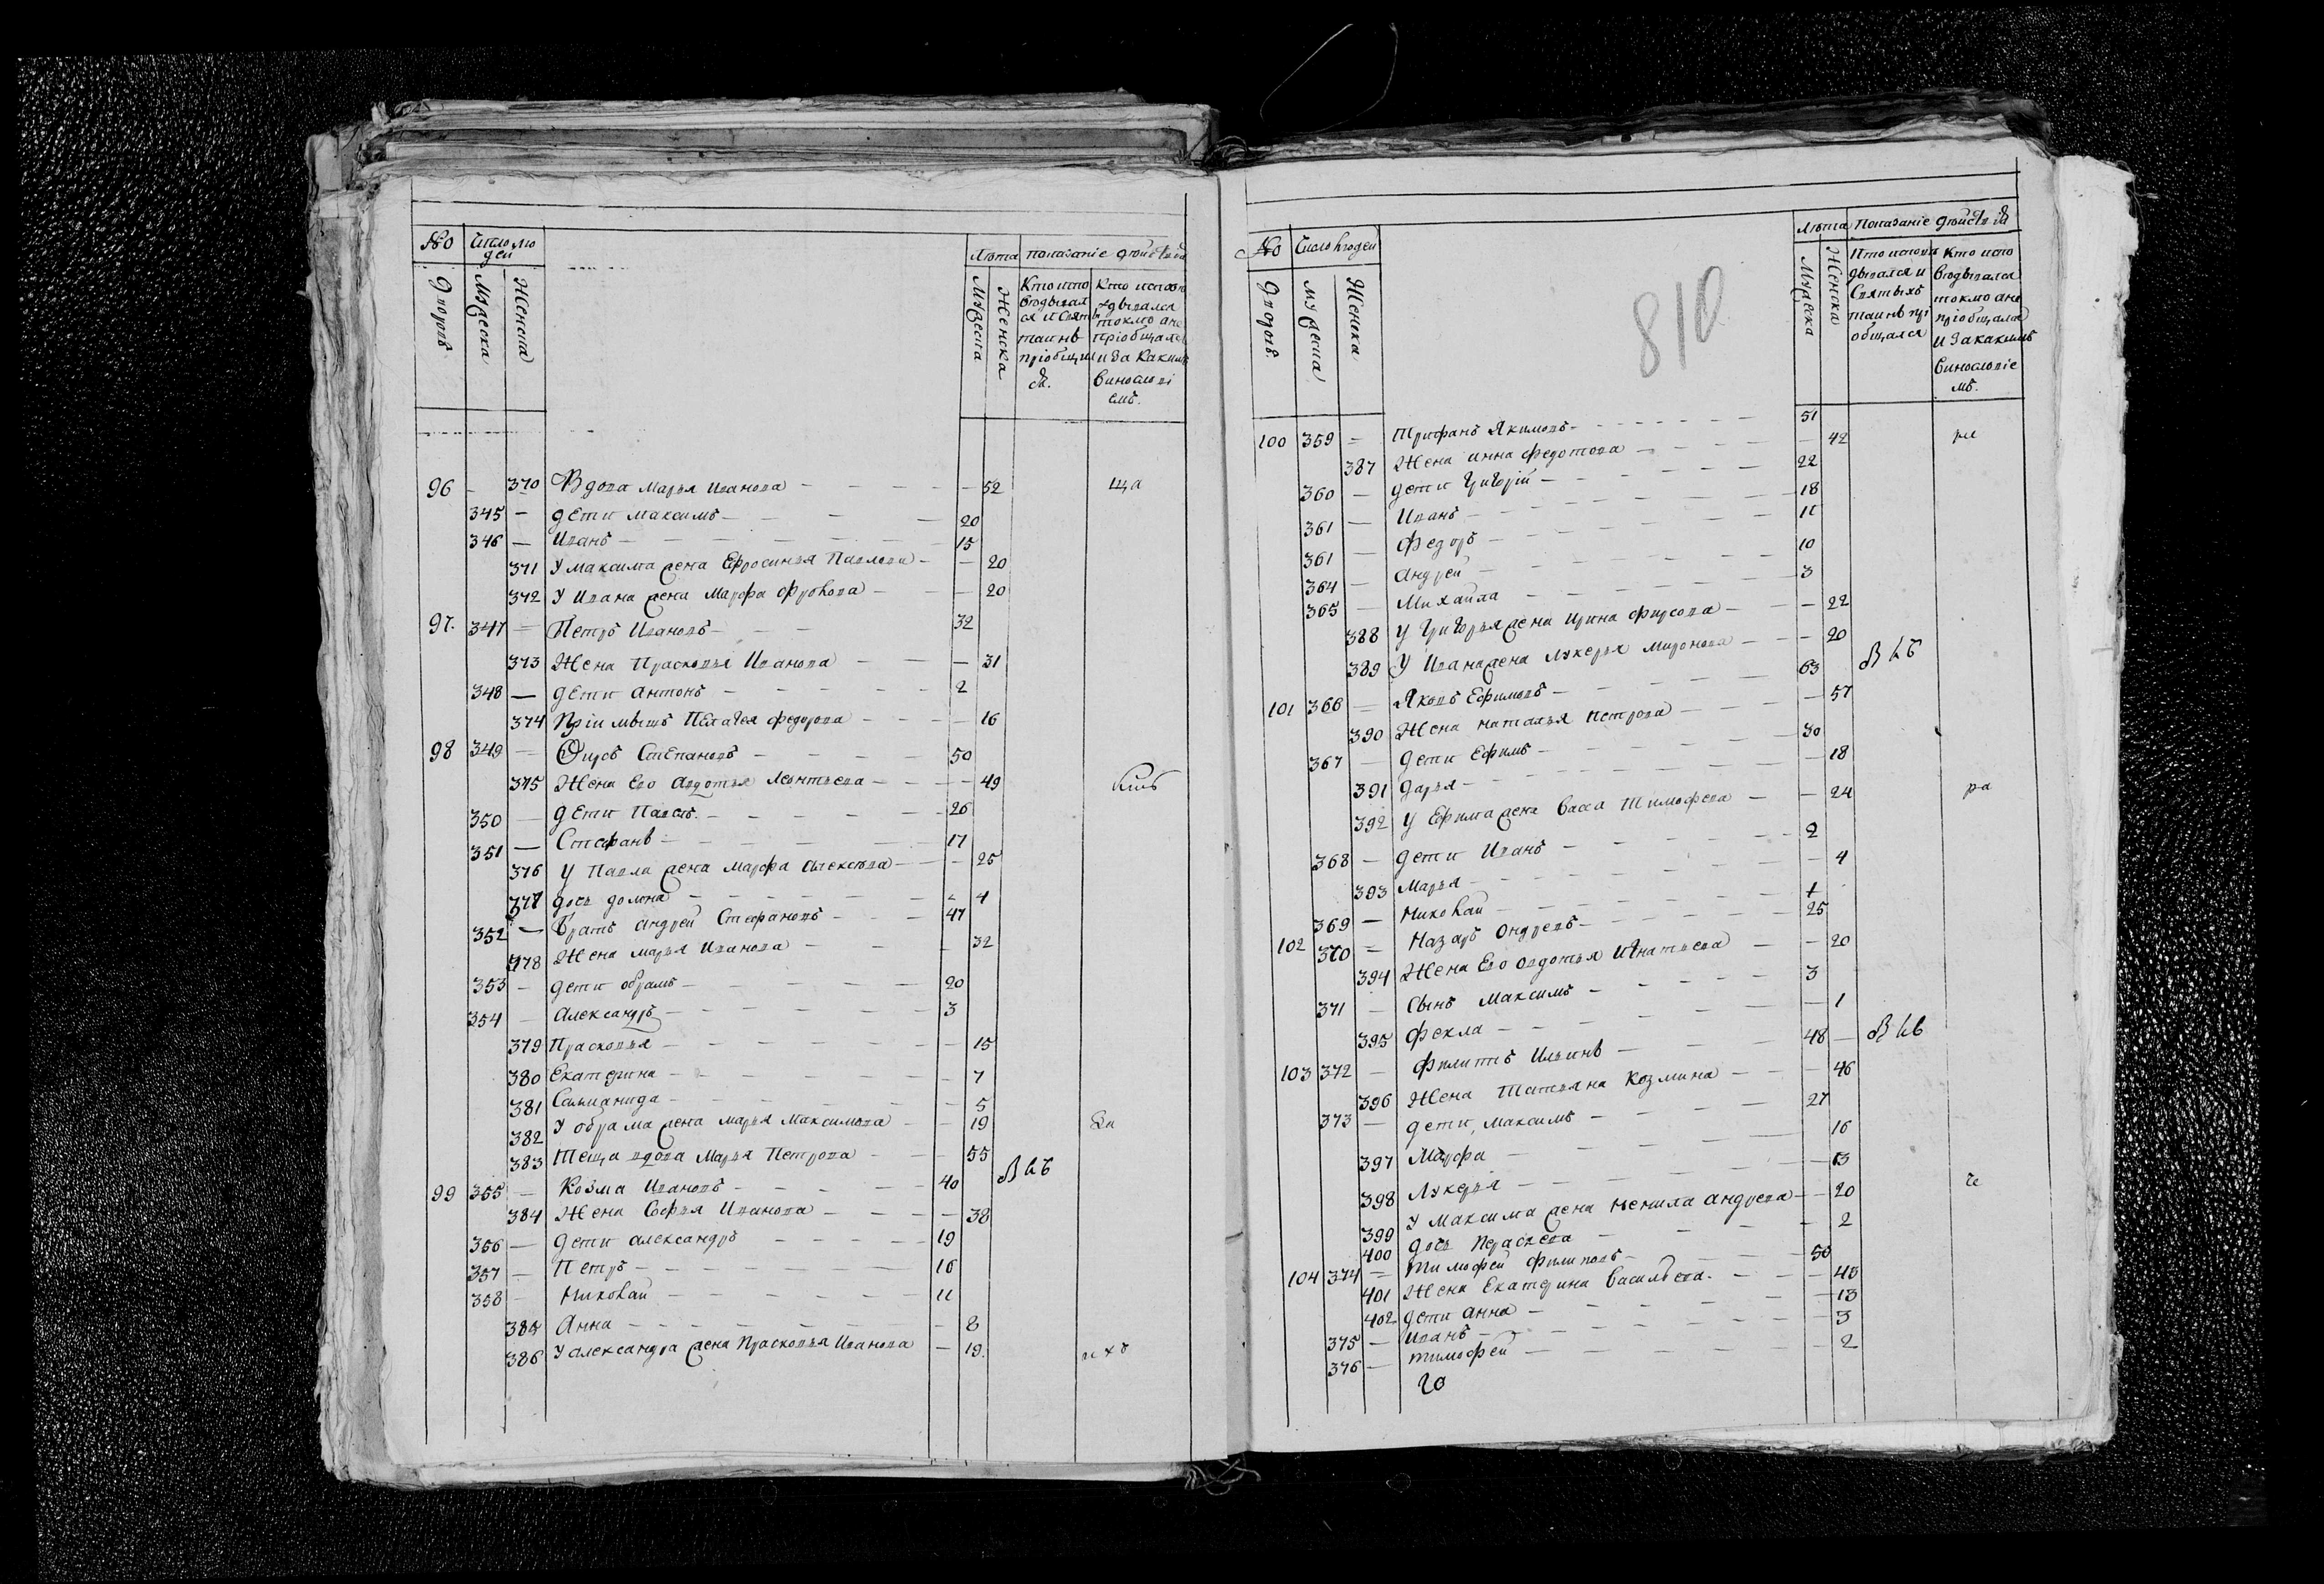 № Число лю
дей
Дворовъ Мужеска Женска
Лѣта показаніе действа
Мужеска Женска
Кто испо
ведывал
ся и святы
таинъ
пріобщил
ся.
Кто испове
дывался
токмо а не
пріобщался
и за какимъ
винословi
емъ.
96 - 370 Вдова Марья Иванова - 52
345 - дети Максимъ - 20
346 - Иванъ - 15
371 У Максима жена Ефросинья Павлова - 20
372 У Ивана жена Марфа Фролова - 20
97. 347 - Петръ Ивановъ - 32
373 Жена Прасковья Иванова - 31
348 - дети Антонъ - 2
374 Пріимышъ Пелагея Федорова - 16
98 349 - Фирсъ Степановъ - 50
375 Жена Его Авдотья Леонтьева - 49
350 - дети Павелъ - 26
351 - Стефанъ - 17
376 У Павла жена Марфа Алексѣева - 25
377 дочь Домна - 4
352 - Братъ Андрей Стефановъ - 47
378 Жена Марья Иванова - 32
353 - дети Обрамъ - 20
354 - Александръ - 3
379 Прасковья - 15
380 Екатерина - 7
381 - 5
382 У Обрама жена Марья Максимова - 19
383 Теща вдова Марья Петрова - 55
99 355 - Козма Ивановъ - 40
384 Жена Софья Иванова - 38
356 - дети Александръ - 19
357 - Петръ - 16
358 - Николай - 11
385 Анна - 8
386 У Александра жена Прасковья Иванова - 19.
№ Число людей
Дворовъ Мужеска Женска
810
Лѣта Показаніе действа
Мужеска Женска
Кто испове
дывался и
Святыхъ
таинъ прі
общался
Кто испо
ведывался
токмо а не
пріобщался
и за какимъ
винословіе
мъ.
100 359 - Трифанъ Якимовъ - 51
387 Жена Анна Федотова - 42
360 - дети Григорій - 22
361 - Иванъ - 18
361 - Федоръ - 11
364 - Андрей - 10
365 - Михайла - 3
388 У Григорья жена Ирина Фирсова - 22
389 У Ивана жена Лукерья Миронова - 20
101 366 - Яковъ Ефимовъ - 63
390 Жена Наталья Петрова - 57
367 - Дети Ефимъ - 30
391 Дарья - 18
392 У Ефима жена Васса Тимофеева - 24
368 - дети Иванъ - 2
393 Марья - 4
369 - Николай - 1
102 370 - Назаръ Ондреевъ - 25
394 Жена Его Овдотья Игнатьева - 20
371 - Сынъ Максимъ - 3
395 Фекла - 1
103 372 - Филипъ Ильинъ - 48
396 Жена Татьяна Козмина - 46
373 - дети, Максимъ - 27
397 Марфа - 16
398 Лукерья - 13
399 У Максима жена Ненила Андреева - 20
400 дочь Параскева - 2
104 374 - Тимофей Филиповъ - 50
401 Жена Екатерина Васильева. - 45
402 дети Анна - 13
375 - Иванъ - 3
376 - Тимофей - 2